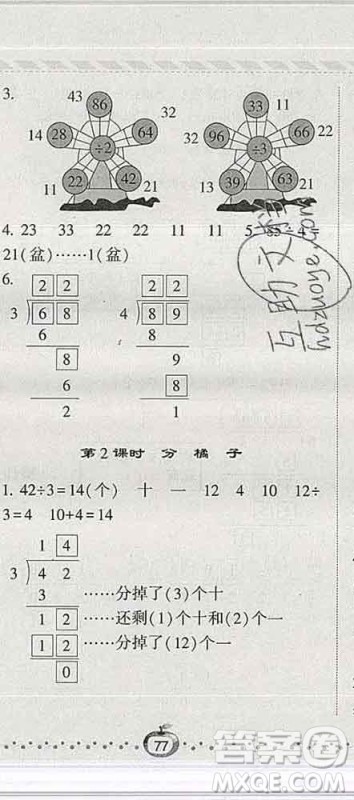 3.
43 86 33 11
32
14 28 64 32 96 66 22
÷2 ÷3
11 22 42 21 13 39 63 21
4. 23 33 22 22 11 11 5.
21(盆)……1(盆)
6.
2 2 2 2
3 6 8 4 8 9
6 8
8 9
6 8
2 1
第2课时 分 橘 子
1. 42÷3=14(个) 十 一 12 4 10 12÷
3=4 10+4=14
1 4
3 4 2
3 ……分掉了(3)个十
1 2 ……还剩(1)个十和(2)个一
1 2 ……分掉了(12)个一
0
77
互助文
答案圈
MXQE.COM